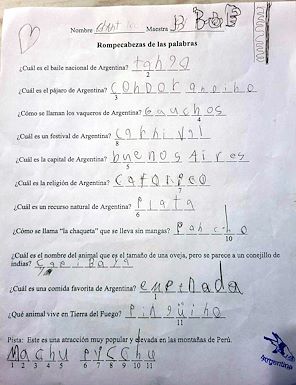 Nombre Maestra B
Rompecabezas de las palabras
¿Cuál es el baile nacional de Argentina? tango
2
¿Cuál es el pájaro de Argentina? condor andino
3
¿Cómo se llaman los vaqueros de Argentina? gauchos
4
¿Cuál es un festival de Argentina? carnival
8
¿Cuál es la capital de Argentina? buenos aires
5
¿Cuál es la religión de Argentina? catolico
7
¿Cuál es un recurso natural de Argentina? plata
6
¿Cómo se llama "la chaqueta" que se lleva sin mangas? poncho
10
¿Cuál es el nombre del animal que es el tamaño de una oveja, pero se parece a un conejillo de
indias? capibara
¿Cuál es una comida favorita de Argentina? empanada
1
¿Qué animal vive en Tierra del Fuego? pingüino
11
Pista: Este es una atracción muy popular y elevada en las montañas de Perú.
Machu picchu
1 2 3 4 5 6 7 8 9 10 11
Argentina